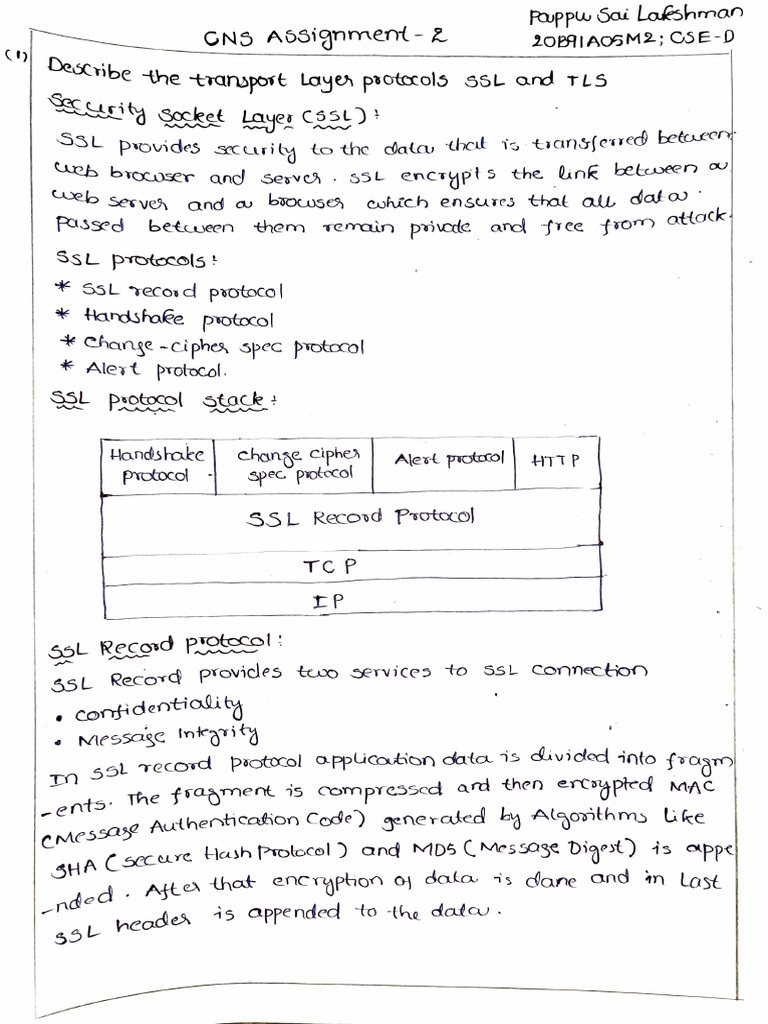 Pappu Sai Lakshman
CNS Assignment - 2
20B91A05M2; CSE-D
(1)
Describe the transport Layer protocols SSL and TLS
Security Socket Layer (SSL):
SSL provides security to the data that is transferred between
web browser and server. SSL encrypts the link between a
web server and a browser which ensures that all data
passed between them remain private and free from attack.
SSL protocols:
* SSL record protocol
* Handshake protocol
* Change-cipher spec protocol
* Alert protocol.
SSL protocol stack:
Handshake protocol
change cipher spec protocol
Alert protocol
HTTP
SSL Record Protocol
TCP
IP
SSL Record protocol:
SSL Record provides two services to SSL connection
• Confidentiality
• Message Integrity
In SSL record protocol application data is divided into fragm
-ents. The fragment is compressed and then encrypted MAC
(Message Authentication Code) generated by Algorithms like
SHA (Secure Hash Protocol) and MD5 (Message Digest) is appe
-nded. After that encryption of data is done and in Last
SSL header is appended to the data.